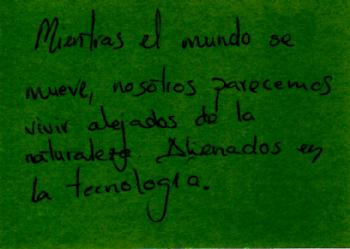 Mientras el mundo se
mueve, nosotros parecemos
vivir alejados de la
naturaleza. Alienados en
la tecnología.